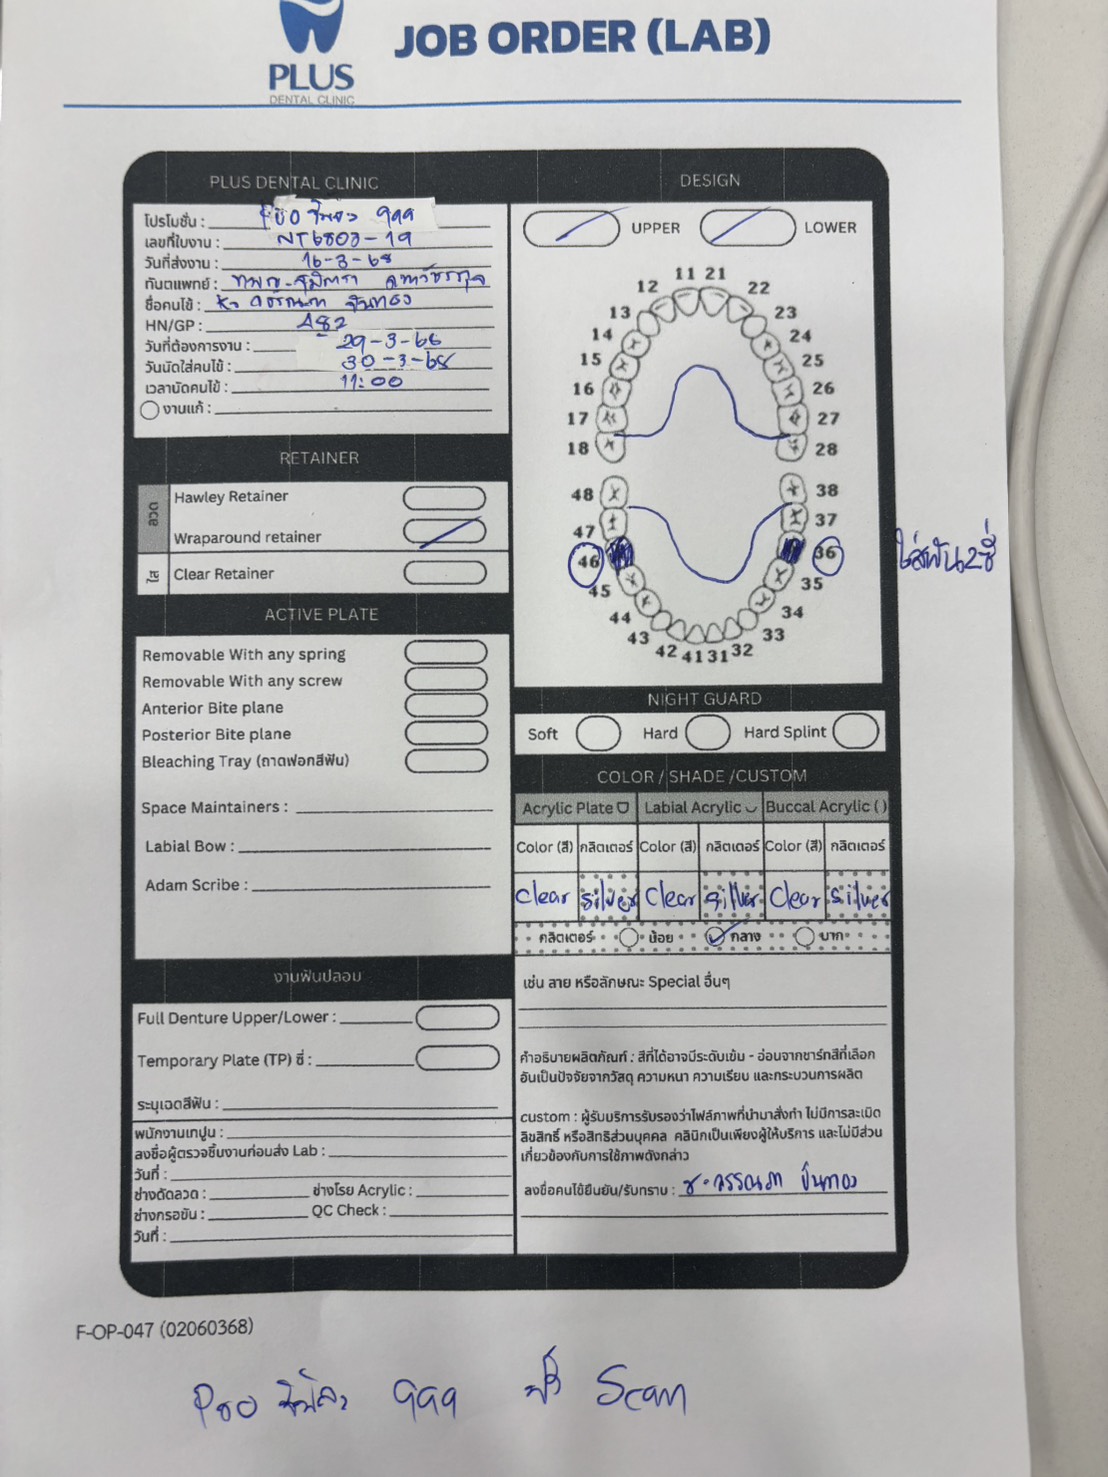 PLUS
DENTAL CLINIC
JOB ORDER (LAB)
PLUS DENTAL CLINIC
โปรโมชั่น : pro 999
เลขที่ใบงาน : NT6803-19
วันที่ส่งงาน : 16-3-68
ทันตแพทย์ :
ชื่อคนไข้ :
HN/GP : A82
วันที่ต้องการงาน : 29-3-68
วันนัดใส่คนไข้ : 30-3-68
เวลานัดคนไข้ : 11:00
งานแก้ :
RETAINER
ลวด
Hawley Retainer
Wraparound retainer
ใส
Clear Retainer
ACTIVE PLATE
Removable With any spring
Removable With any screw
Anterior Bite plane
Posterior Bite plane
Bleaching Tray (ถาดฟอกสีฟัน)
Space Maintainers :
Labial Bow :
Adam Scribe :
งานฟันปลอม
Full Denture Upper/Lower :
Temporary Plate (TP) ซี่ :
ระบุเฉดสีฟัน :
พนักงานเทปูน :
ลงชื่อผู้ตรวจชิ้นงานก่อนส่ง Lab :
วันที่ :
ช่างดัดลวด : ช่างโรย Acrylic :
ช่างกรอขัน : QC Check :
วันที่ :
DESIGN
UPPER LOWER
11 21
12 22
13 23
14 24
15 25
16 26
17 27
18 28
48 38
47 37
46 36 ใส่ฟัน 2 ซี่
45 35
44 34
43 33
42 41 31 32
NIGHT GUARD
Soft Hard Hard Splint
COLOR / SHADE /CUSTOM
Acrylic Plate Labial Acrylic Buccal Acrylic ( )
Color (สี) กลิตเตอร์ Color (สี) กลิตเตอร์ Color (สี) กลิตเตอร์
Clear Silver Clear Silver Clear Silver
กลิตเตอร์ น้อย กลาง มาก
เช่น ลาย หรือลักษณะ Special อื่นๆ
คำอธิบายผลิตภัณฑ์ : สีที่ได้อาจมีระดับเข้ม - อ่อนจากชาร์ทสีที่เลือก
อันเป็นปัจจัยจากวัสดุ ความหนา ความเรียบ และกระบวนการผลิต
custom : ผู้รับบริการรับรองว่าไฟล์ภาพที่นำมาสั่งทำ ไม่มีการละเมิด
ลิขสิทธิ์ หรือสิทธิส่วนบุคคล คลินิกเป็นเพียงผู้ให้บริการ และไม่มีส่วน
เกี่ยวข้องกับการใช้ภาพดังกล่าว
ลงชื่อคนไข้ยืนยัน/รับทราบ :
F-OP-047 (02060368)
Pro 999 ฟรี Scan